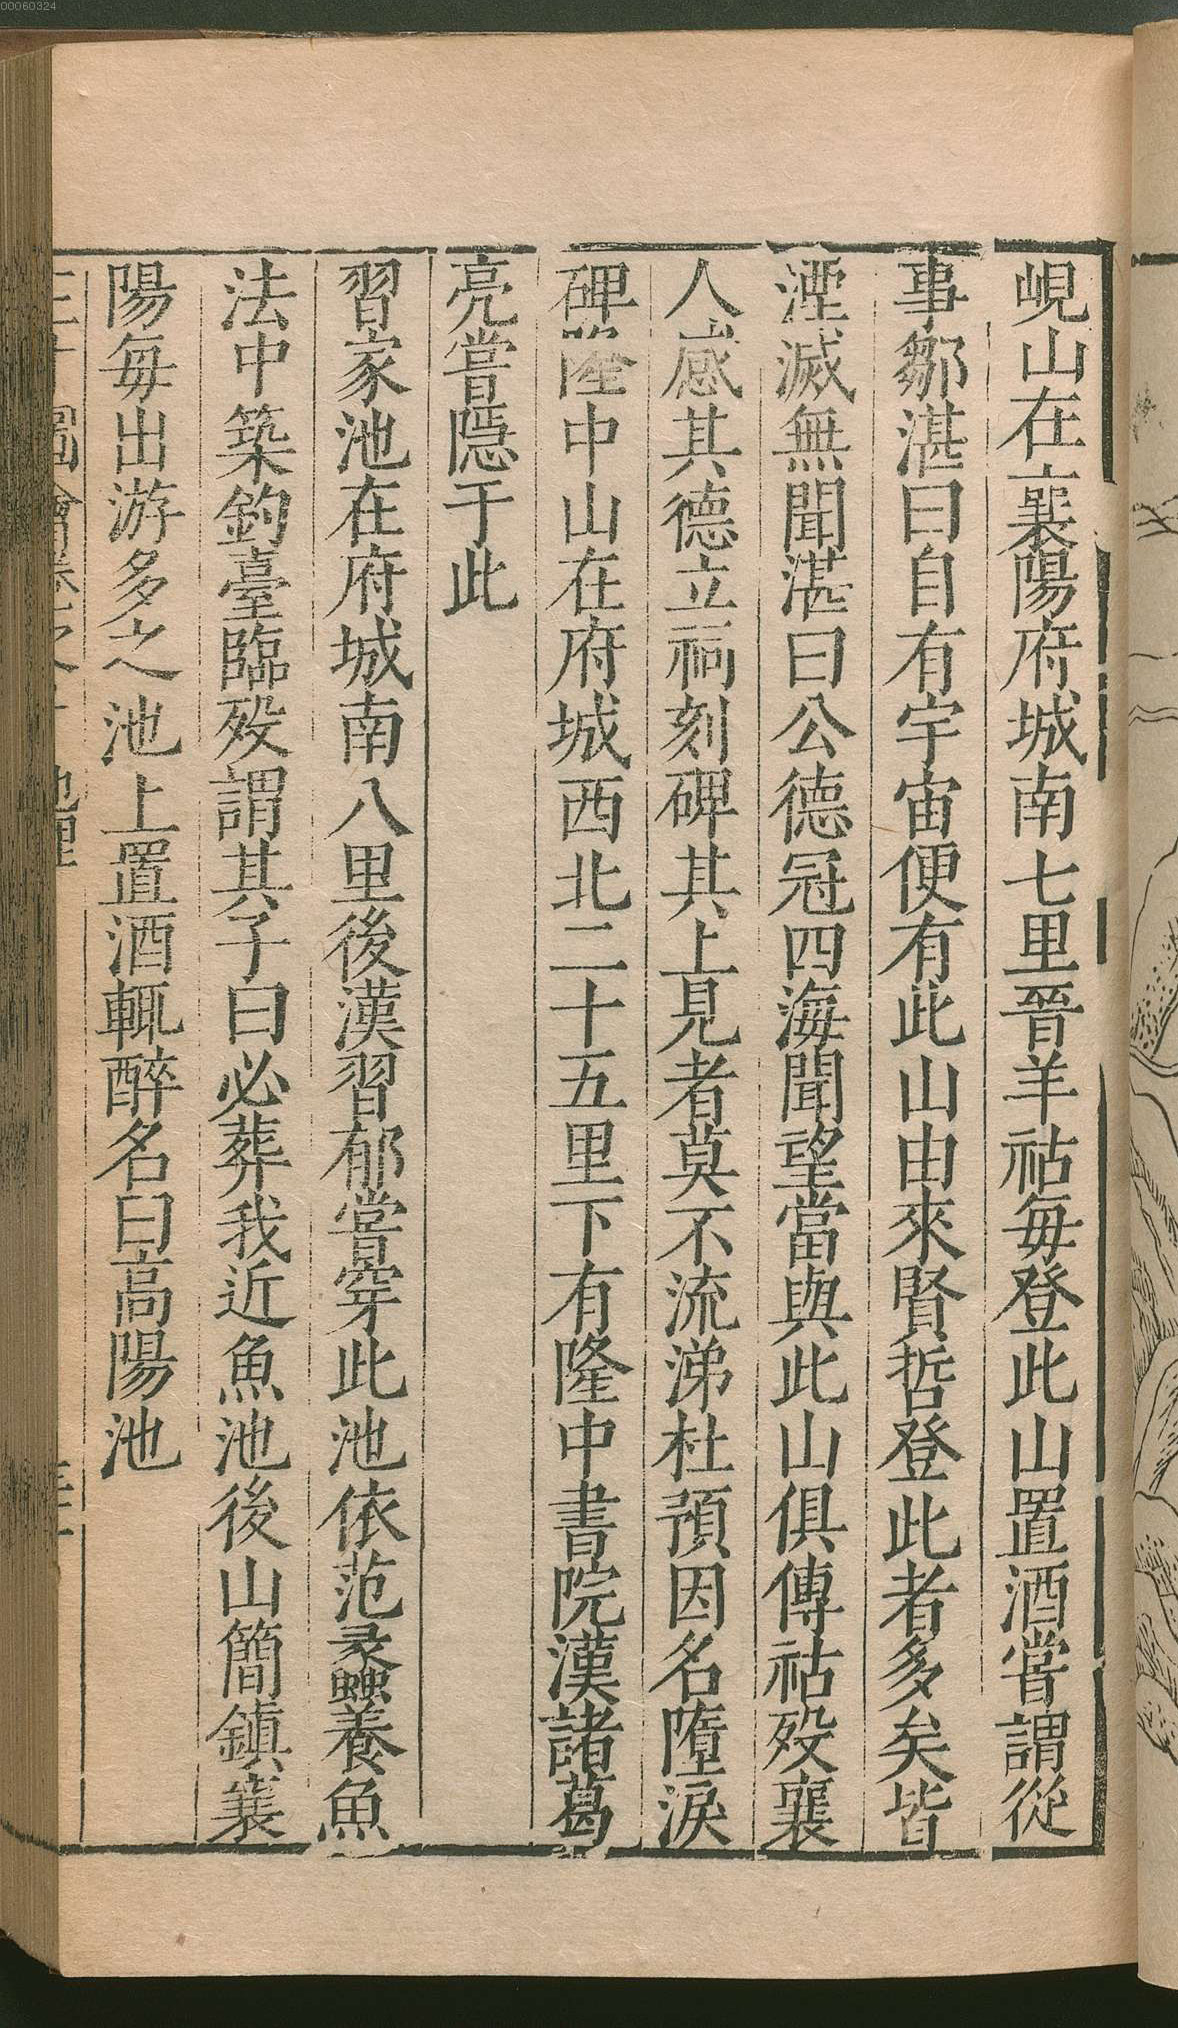 00060324
峴山在襄陽府城南七里晉羊祜每登此山置酒嘗謂從
事鄒湛曰自有宇宙便有此山由來賢哲登此者多矣皆
湮滅無聞湛曰公德冠四海聞望當與此山俱傳祜歿襄
人感其德立祠刻碑其上見者莫不流涕杜預因名墮淚
碑隆中山在府城西北二十五里下有隆中書院漢諸葛
亮嘗隱于此
習家池在府城南八里後漢習郁嘗穿此池依范蠡養魚
法中築釣臺臨歿謂其子曰必葬我近魚池後山簡鎮襄
陽每出游多之池上置酒輒醉名曰高陽池